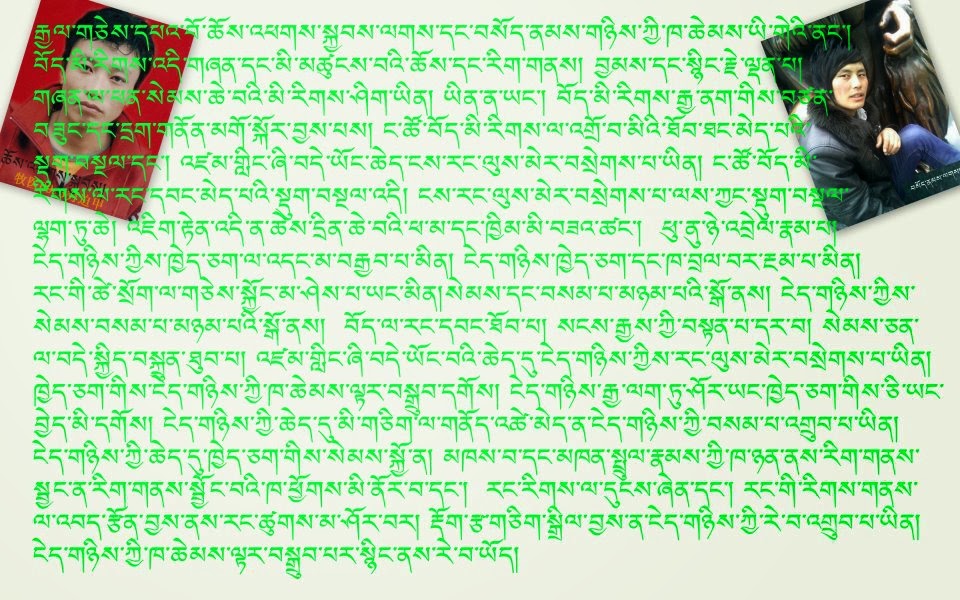 རྒྱལ་གཅེས་དཔའ་བོ་ཆོས་འཕགས་སྐྱབས་ལགས་དང་བསོད་ནམས་གཉིས་ཀྱི་ཁ་ཆེམས་ཡི་གེའི་ནང་།
བོད་མི་རིགས་འདི་གཞན་དང་མི་མཚུངས་བའི་ཆོས་དང་རིག་གནས། བྱམས་དང་སྙིང་རྗེ་ལྡན་པ།
གཞན་ལ་ཕན་སེམས་ཆེ་བའི་མི་རིགས་ཤིག་ཡིན། ཡིན་ན་ཡང་། བོད་མི་རིགས་རྒྱ་ནག་གིས་བཙན་
བཟུང་དང་དྲག་གནོན་མགོ་སྐོར་བྱས་པས། ང་ཚོ་བོད་མི་རིགས་ལ་འགྲོ་བ་མིའི་ཐོབ་ཐང་མེད་པའི་
སྡུག་བསྔལ་དང་། འཛམ་གླིང་ཞི་བདེ་ཡོང་ཆེད་ངས་རང་ལུས་མེར་བསྲེགས་པ་ཡིན། ང་ཚོ་བོད་མི་
རིགས་ལ་རང་དབང་མེད་པའི་སྡུག་བསྔལ་འདི། ངས་རང་ལུས་མེར་བསྲེགས་པ་ལས་ཀྱང་སྡུག་བསྔལ་
ལྷག་ཏུ་ཆེ། འཇིག་རྟེན་འདི་ན་ཆེས་དྲིན་ཆེ་བའི་ཕ་མ་དང་ཁྱིམ་མི་བཟའ་ཚང་། ཕུ་ནུ་ཉེ་འབྲེལ་རྣམ་པ།
ངེད་གཉིས་ཀྱིས་ཁྱེད་ཅག་ལ་འདང་མ་བརྒྱབ་པ་མིན། ངེད་གཉིས་ཁྱེད་ཅག་དང་ཁ་བྲལ་བར་རྔམ་པ་མིན།
རང་གི་ཚེ་སྲོག་ལ་གཅེས་སྐྱོང་མ་ཤེས་པ་ཡང་མིན།སེམས་དང་བསམ་པ་མཉམ་པའི་སྒོ་ནས། ངེད་གཉིས་ཀྱིས་
སེམས་བསམ་པ་མཉམ་པའི་སྒོ་ནས། བོད་ལ་རང་དབང་ཐོབ་པ། སངས་རྒྱས་ཀྱི་བསྟན་པ་དར་བ། སེམས་ཅན་
ལ་བདེ་སྐྱིད་བསྐྲུན་ཐུབ་པ། འཛམ་གླིང་ཞི་བདེ་ཡོང་བའི་ཆེད་དུ་ངེད་གཉིས་ཀྱིས་རང་ལུས་མེར་བསྲེགས་པ་ཡིན།
ཁྱེད་ཅག་གིས་ངེད་གཉིས་ཀྱི་ཁ་ཆེམས་ལྟར་བསྒྲུབ་དགོས། ངེད་གཉིས་རྒྱ་ལག་ཏུ་ཤོར་ཡང་ཁྱེད་ཅག་གིས་ཅི་ཡང་
བྱེད་མི་དགོས། ངེད་གཉིས་ཀྱི་ཆེད་དུ་མི་གཅིག་ལ་གནོད་འཚེ་མེད་ན་ངེད་གཉིས་ཀྱི་བསམ་པ་འགྲུབ་པ་ཡིན།
ངེད་གཉིས་ཀྱི་ཆེད་དུ་ཁྱེད་ཅག་གིས་སེམས་སྐྱོ་ན། མཁས་བ་དང་མཁན་སྤྲུལ་རྣམས་ཀྱི་ཁ་ཉན་ནས་རིག་གནས་
སྦྱང་ན་རིག་གནས་སྦྱོང་བའི་ཁ་ཕྱོགས་མི་ནོར་བ་དང་། རང་རིགས་ལ་དུངས་ཞེན་དང་། རང་གི་རིགས་གནས་
ལ་འབད་རྩོན་བྱས་ནས་རང་ཚུགས་མ་ཤོར་བར། རྡོག་རྩ་གཅིག་སྒྲིལ་བྱས་ན་ངེད་གཉིས་ཀྱི་རེ་བ་འགྲུབ་པ་ཡིན།
ངེད་གཉིས་ཀྱི་ཁ་ཆེམས་ལྟར་བསྒྲུབ་པར་སྙིང་ནས་རེ་བ་ཡོད།